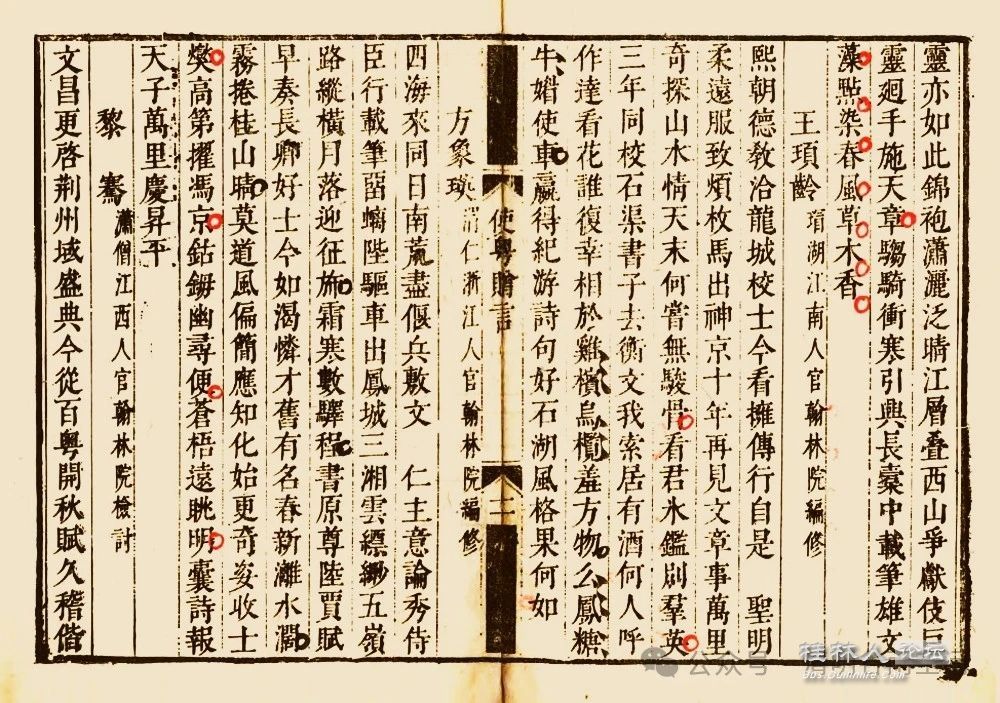 靈亦如此錦袍瀟灑泛晴江層疊西山爭獻伎巨
靈廻手施天章騶騎衝寒引興長橐中載筆雄文
藻點染春風草木香
王頊齡 瑁湖江南人官翰林院編修
熙朝德敎洽龍城校士今看擁傳行自是 聖明
柔遠服致煩枚馬出神京十年再見文章事萬里
奇探山水情天末何嘗無駿骨看君氷鑑別羣英
三年同校石渠書子去衡文我索居有酒何人呼
作達看花誰復幸相於雞檳烏欖羞方物么鳳糖
牛媘使車贏得紀游詩句好石湖風格果何如
使粤贈言
二
方象瑛 渭仁浙江人官翰林院編修
四海來同日南荒盡偃兵敷文 仁主意論秀侍
臣行載筆畱螭陛驅車出鳳城三湘雲縹緲五嶺
路縱橫月落迎征斾霜寒數驛程書原尊陸賈賦
早奏長卿好士今如渴憐才舊有名春新灕水瀰
霧捲桂山晴莫道風偏簡應知化始更奇姿收士
燮高第擢馮京鈷鉧幽尋便蒼梧遠眺明囊詩報
天子萬里慶昇平
黎騫 瀟僧江西人官翰林院檢討
文昌更啓荆州域盛典今從百粤開秋賦久稽偕
公众号
桂林人论坛